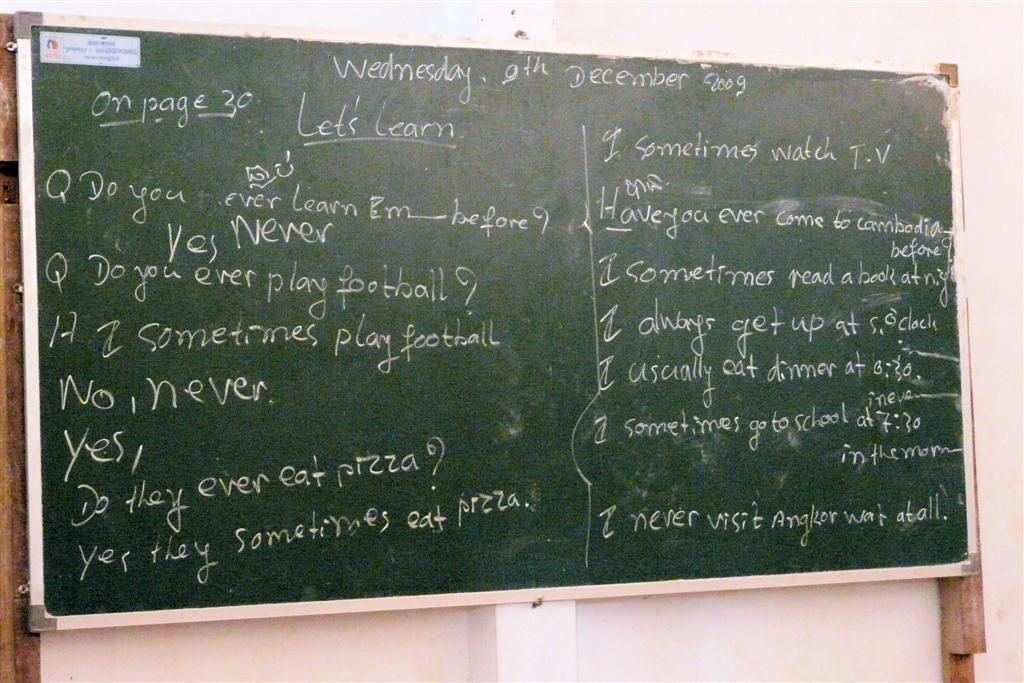 Wednesday. 9th December 2009
On page 30
Let's learn
Q Do you ever learn Em before?
Yes, Never
Q Do you ever play football?
A I sometimes play football
No, never.
yes,
Do they ever eat pizza?
yes they sometimes eat pizza.
I sometimes watch T.V
Have you ever come to cambodia
before?
I sometimes read a book at nig
I always get up at 5,o'clock
I usually eat dinner at 6:30.
in eve
I sometimes go to school at 7:30
in the morn
I never visit Angkor wat at all.